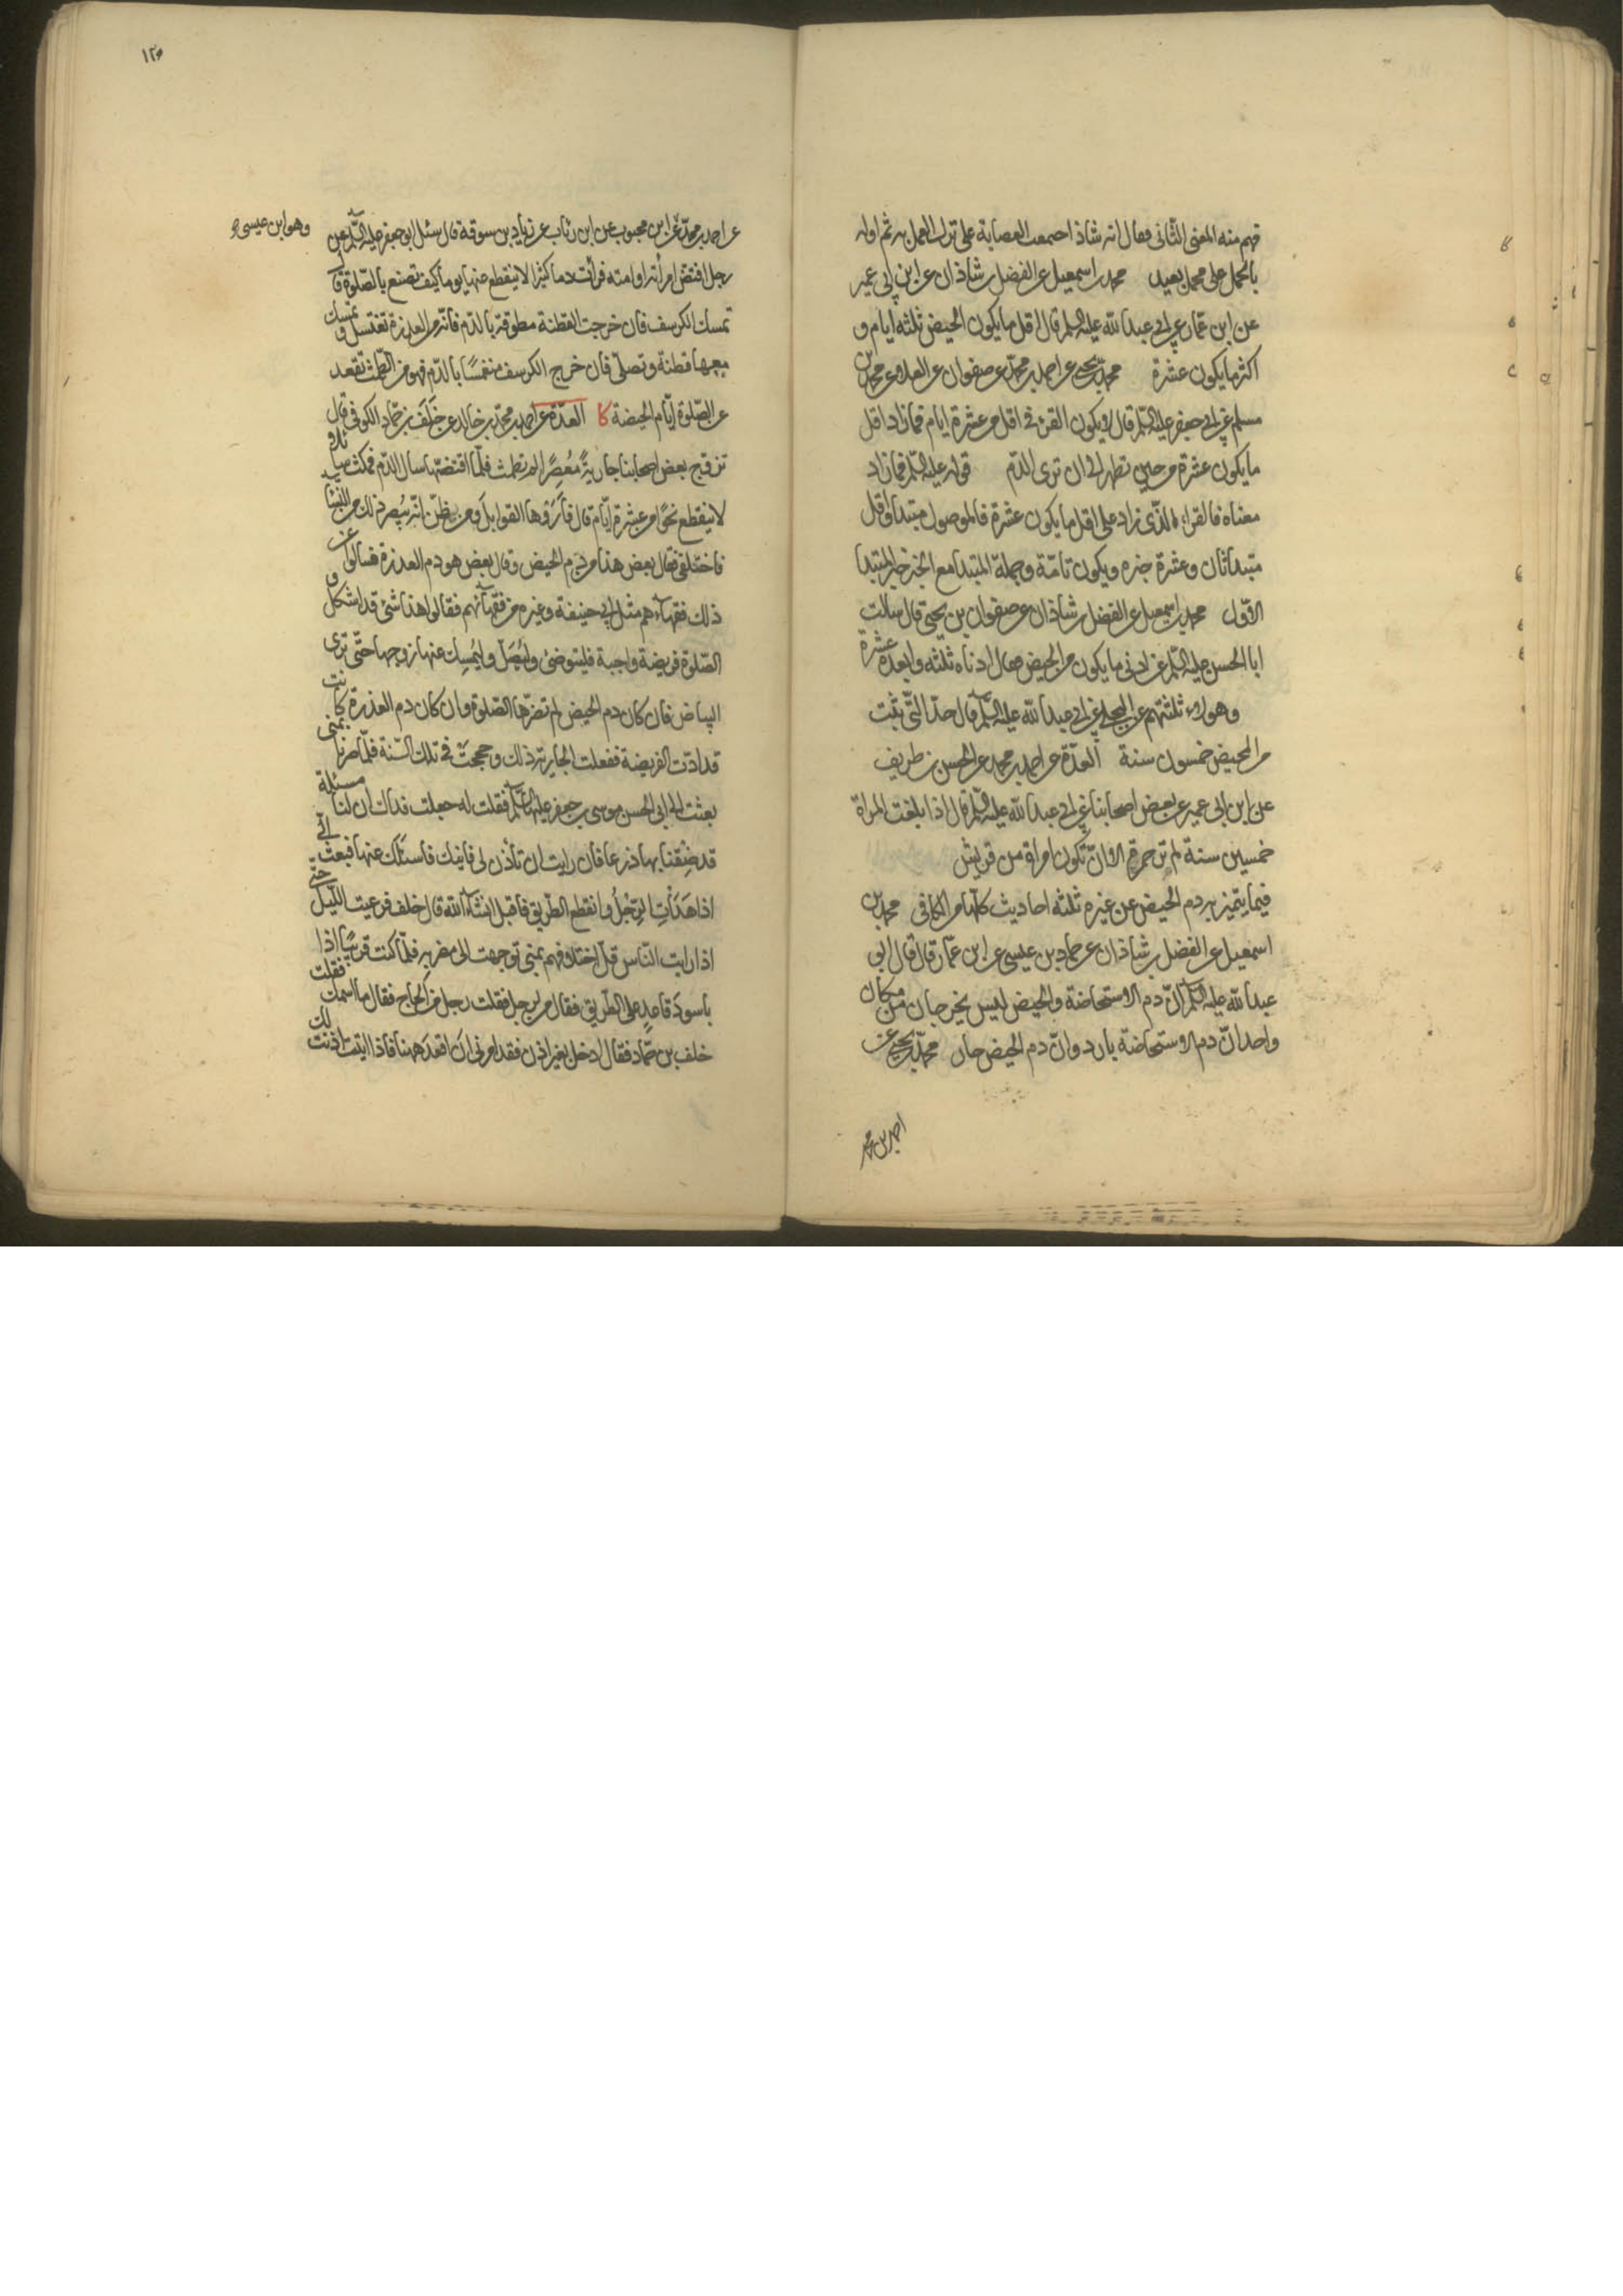 فهم منه المعنى الثانى فقال انه شاذ اجمعت العصابة على ترك العمل به ثم اوله
بالحمل على محمل بعيد محمد بن اسمعيل عن الفضل بن شاذان عن ابن ابى عمير
عن ابن عمار عن ابى عبد الله عليه السلم قال اقل ما يكون الحيض ثلثه ايام و
اكثر ما يكون عشرة محمد بن يحيى عن احمد بن محمد عن صفوان عن العلا عن محمد بن
مسلم عن ابى جعفر عليه السلم قال لا يكون القرء فى اقل من عشرة ايام فما زاد اقل
ما يكون عشرة من حين تطهر الى ان ترى الدم قوله عليه السلم فما زاد
معناه فالقرء الذى زاد على اقل ما يكون عشرة فالموصول مبتدا واقل
مبتدا ثان وعشرة خبره ويكون تامة وجملة المبتدا مع الخبر خبر المبتدا
الاول محمد بن اسمعيل عن الفضل بن شاذان عن صفوان بن يحيى قال سالت
ابا الحسن عليه السلم عن ادنى ما يكون من الحيض فقال ادناه ثلثه وابعده عشرة
وهولاء ثلثتهم عن البجلى عن ابى عبد الله عليه السلم قال حد التى يئست
من المحيض خمسون سنة العدة عن احمد بن محمد عن الحسن بن ظريف
عن ابن ابى عمير عن بعض اصحابنا عن ابى عبد الله عليه السلم قال اذا بلغت المراة
خمسين سنة لم تر حمرة الا ان تكون امراة من قريش
فيما يتميز به دم الحيض عن غيره ثلثه احاديث كلها من الكافى محمد بن
اسمعيل عن الفضل بن شاذان عن حماد بن عيسى عن ابن عمار قال قال ابو
عبد الله عليه السلم ان دم الاستحاضة والحيض ليس يخرجان من مكان
واحد ان دم الاستحاضة بارد وان دم الحيض حار محمد بن يحيى عن
احمد بن محمد
١٢٥
عن احمد بن محمد عن ابن محبوب عن ابن رئاب عن زياد بن سوقة قال سئل ابو جعفر عليه السلم عن
وهو ابن عيسى
رجل افتض امرأته او امته فرأت دما كثيرا لا ينقطع عنها يوما كيف تصنع بالصلوة قال
تمسك الكرسف فان خرجت القطنة مطوقة بالدم فانه من العذرة تغتسل و تمسك
معها قطنة وتصلى فان خرج الكرسف منغمسا بالدم فهو من الطمث تقعد
عن الصلوة ايام الحيضة كا العدة عن احمد بن محمد بن خالد عن خلف بن حماد الكوفى قال
تزوج بعض اصحابنا جارية معصرا لم تطمث فلما اقتضها سال الدم فمكث سايلا
لا ينقطع نحوا من عشرة ايام قال فاروها القوابل ومن ظن انه يبصر ذلك من النساء
فاختلفن فقال بعض هذا من دم الحيض وقال بعض هو دم العذرة فسالوا عن
ذلك فقهاءهم مثل ابى حنيفة وغيره من فقهائهم فقالوا هذا شئ قد اشكل و
الصلوة فريضة واجبة فليتوضئ ولتصل وليمسك عنها زوجها حتى ترى
البياض فان كان دم الحيض لم تضرها الصلوة وان كان دم العذرة كانت
قد ادت الفريضة ففعلت الجارية ذلك وحججت فى تلك السنة فلما صرنا بمنى
بعثت الى ابى الحسن موسى بن جعفر عليهما السلم فقلت له جعلت فداك ان لنا مسئلة
قد ضقنا بها ذرعا فان رايت ان تأذن لى فاتيك فاسئلك عنها فبعث الى
اذا هدأت الرجل وانقطع الطريق فاقبل انشاء الله قال خلف فرعيت الليل حتى
اذا رايت الناس قل اختلافهم بمنى توجهت الى مضربه فلما كنت قريبا اذا
باسود قاعد على الطريق فقال من الرجل فقلت رجل من الحاج فقال ما اسمك فقلت
خلف بن حماد فقال ادخل بغير اذن فقد امرنى ان اقعد ههنا فاذا اتيت اذنت لك